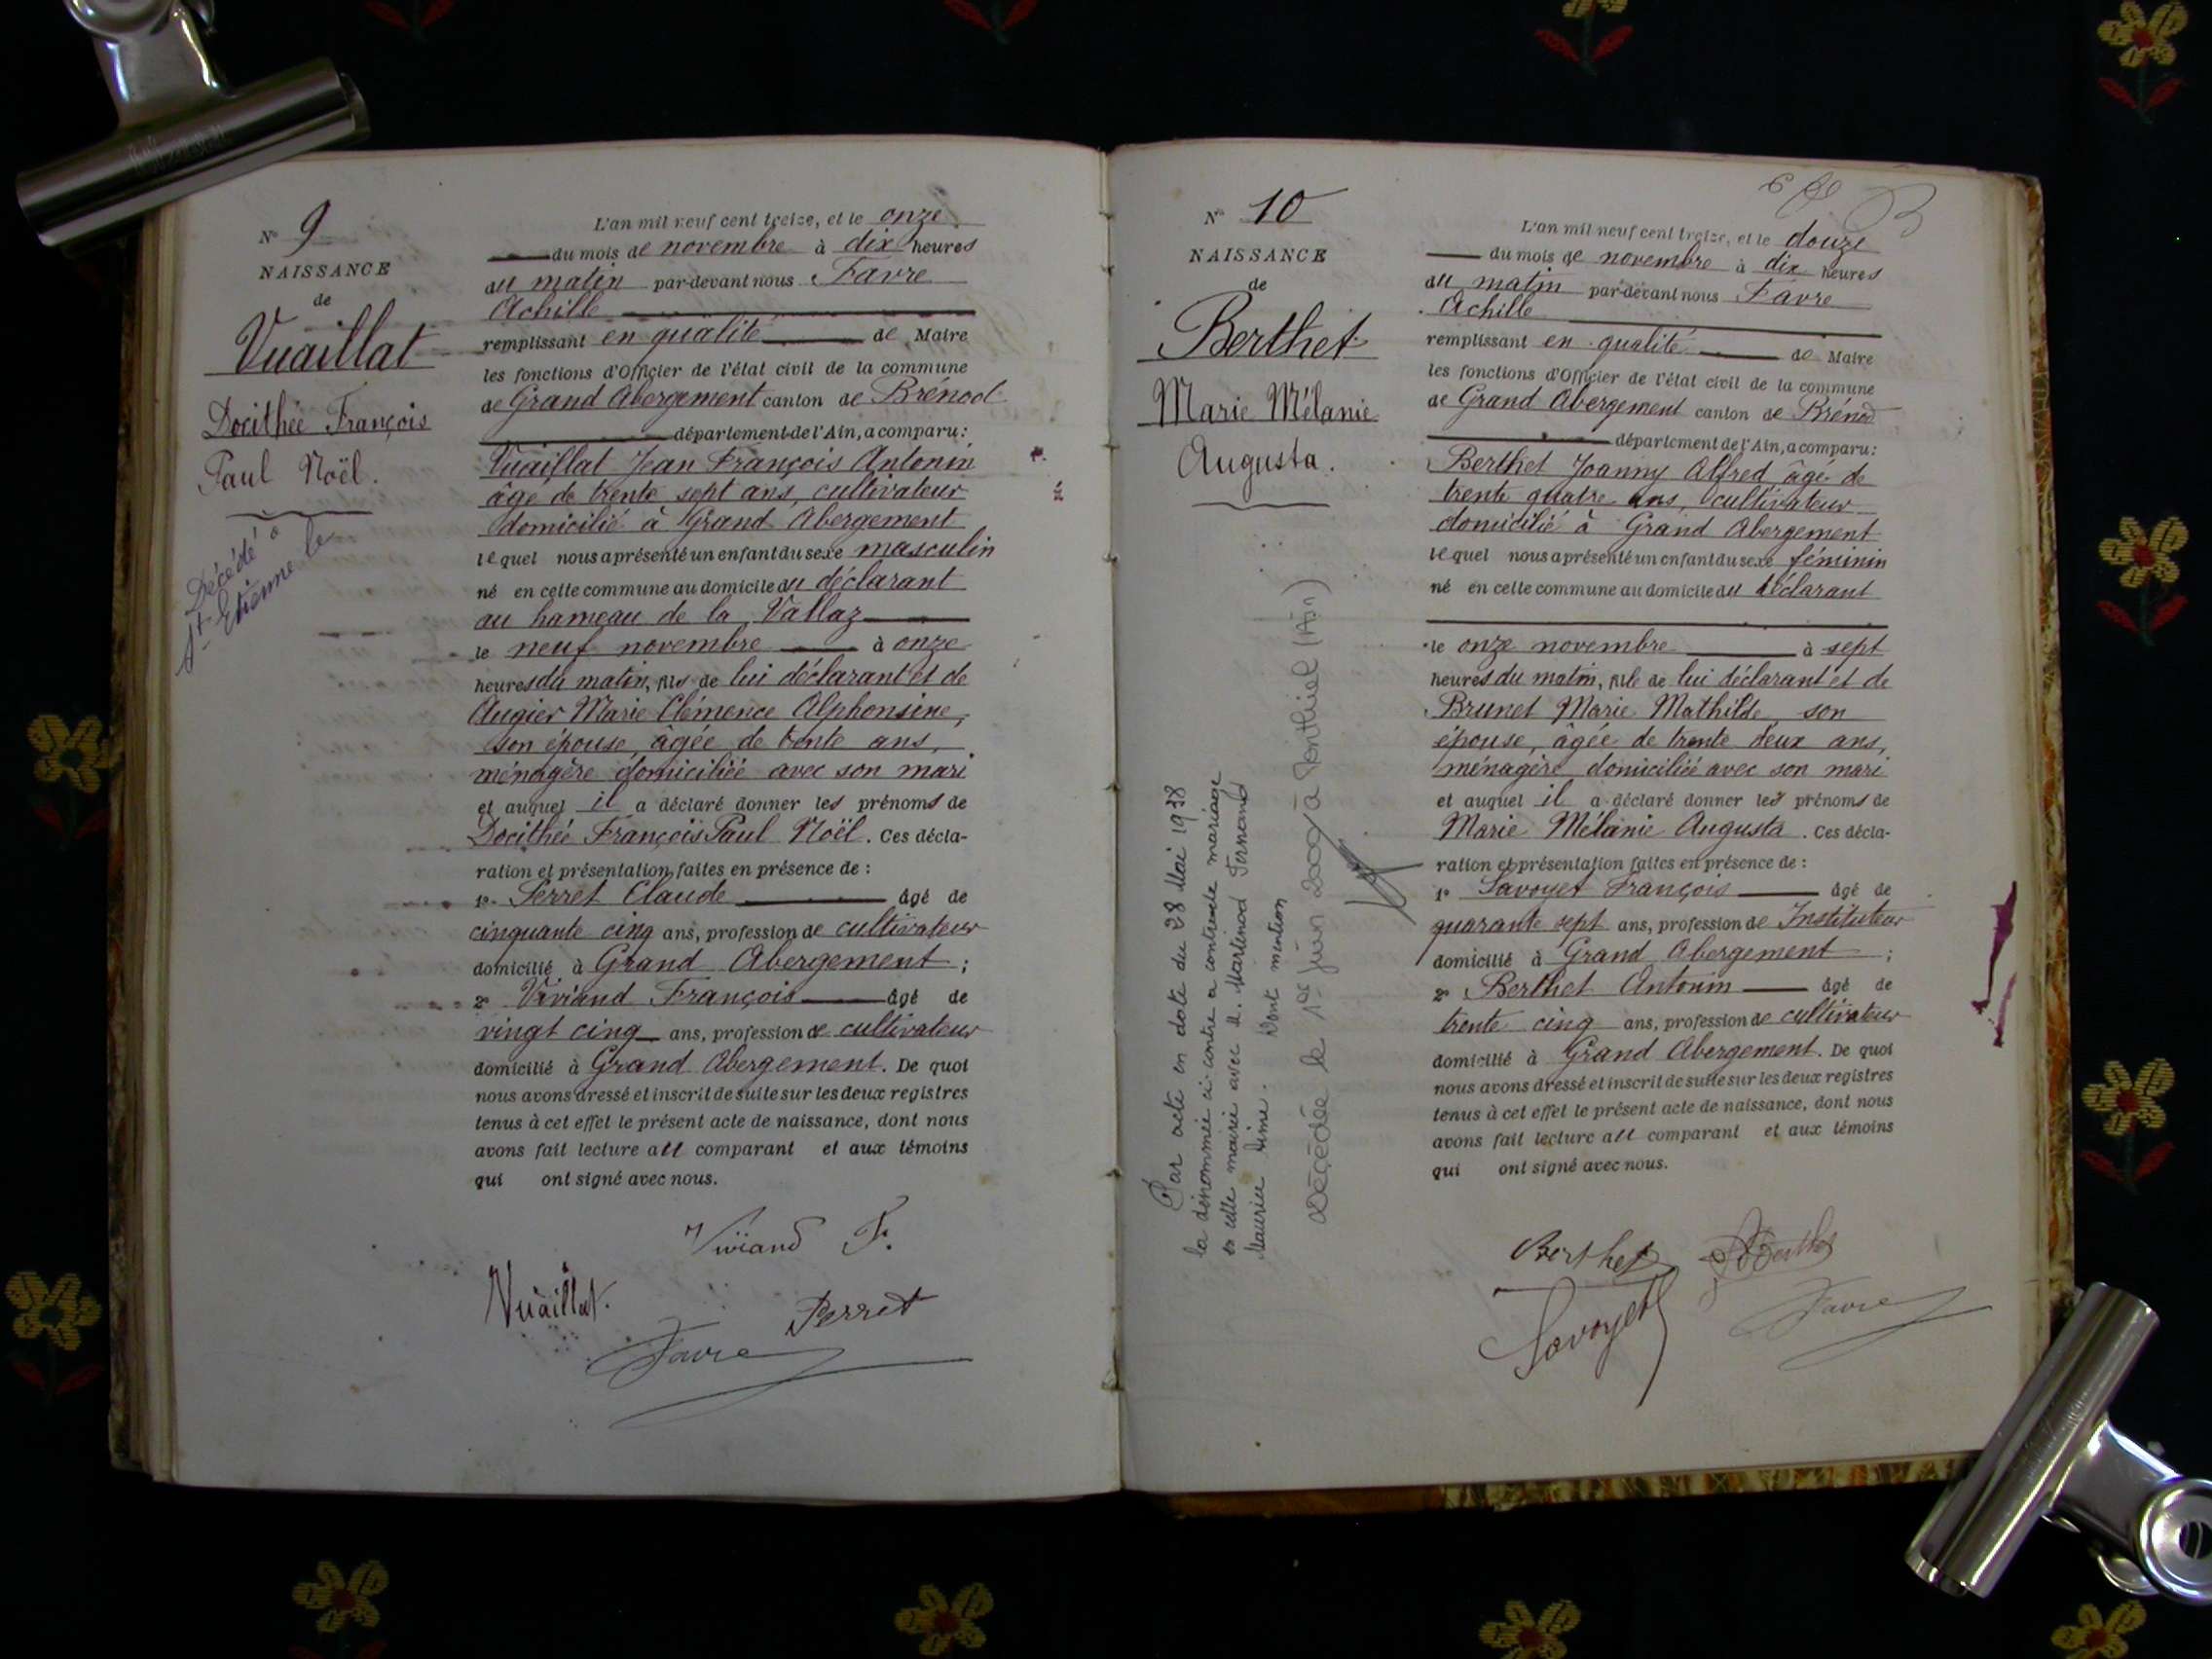 N° 9
NAISSANCE
de
Vuaillat
Docithée François
Paul Noël.
Décédé à
St Etienne le
L'an mil neuf cent treize, et le onze
du mois de novembre à dix heures
du matin par-devant nous Favre
Achille
remplissant en qualité de Maire
les fonctions d'Officier de l'état civil de la commune
de Grand Abergement canton de Brénod
département de l'Ain, a comparu:
Vuaillat Jean François Antonin
âgé de trente sept ans, cultivateur
domicilié à Grand Abergement
lequel nous a présenté un enfant du sexe masculin
né en cette commune au domicile du déclarant
au hameau de la Vallaz
le neuf novembre à onze
heures du matin, fils de lui déclarant et de
Augier Marie Clémence Alphonsine,
son épouse, âgée de trente ans,
ménagère domiciliée avec son mari
et auquel il a déclaré donner les prénoms de
Docithée François Paul Noël. Ces décla-
ration et présentation faites en présence de :
1° Perret Claude âgé de
cinquante cinq ans, profession de cultivateur
domicilié à Grand Abergement ;
2° Viviand François âgé de
vingt cinq ans, profession de cultivateur
domicilié à Grand Abergement. De quoi
nous avons dressé et inscrit de suite sur les deux registres
tenus à cet effet le présent acte de naissance, dont nous
avons fait lecture au comparant et aux témoins
qui ont signé avec nous.
Viviand F.
Vuaillat.
Perret
Favre
N° 10
NAISSANCE
de
Berthet
Marie Mélanie
Augusta.
Par acte en date du 28 Mai 1938
la dénommée ci-contre a contracté mariage
en cette mairie avec M. Martinod Fernand
Maurice Aimé. Dont mention
Décédée le 1er Juin 2009 à (Ain)
L'an mil neuf cent treize, et le douze
du mois de novembre à dix heures
du matin par-devant nous Favre
Achille
remplissant en qualité de Maire
les fonctions d'Officier de l'état civil de la commune
de Grand Abergement canton de Brénod
département de l'Ain, a comparu:
Berthet Joanny Alfred âgé de
trente quatre ans, cultivateur
domicilié à Grand Abergement
lequel nous a présenté un enfant du sexe féminin
né en cette commune au domicile du déclarant
le onze novembre à sept
heures du matin, fille de lui déclarant et de
Brunet Marie Mathilde son
épouse, âgée de trente deux ans,
ménagère domiciliée avec son mari
et auquel il a déclaré donner les prénoms de
Marie Mélanie Augusta. Ces décla-
ration et présentation faites en présence de :
1° Savoyet François âgé de
quarante sept ans, profession de Instituteur
domicilié à Grand Abergement ;
2° Berthet Antonin âgé de
trente cinq ans, profession de cultivateur
domicilié à Grand Abergement. De quoi
nous avons dressé et inscrit de suite sur les deux registres
tenus à cet effet le présent acte de naissance, dont nous
avons fait lecture au comparant et aux témoins
qui ont signé avec nous.
Berthet
Berthet
Savoyet
Favre